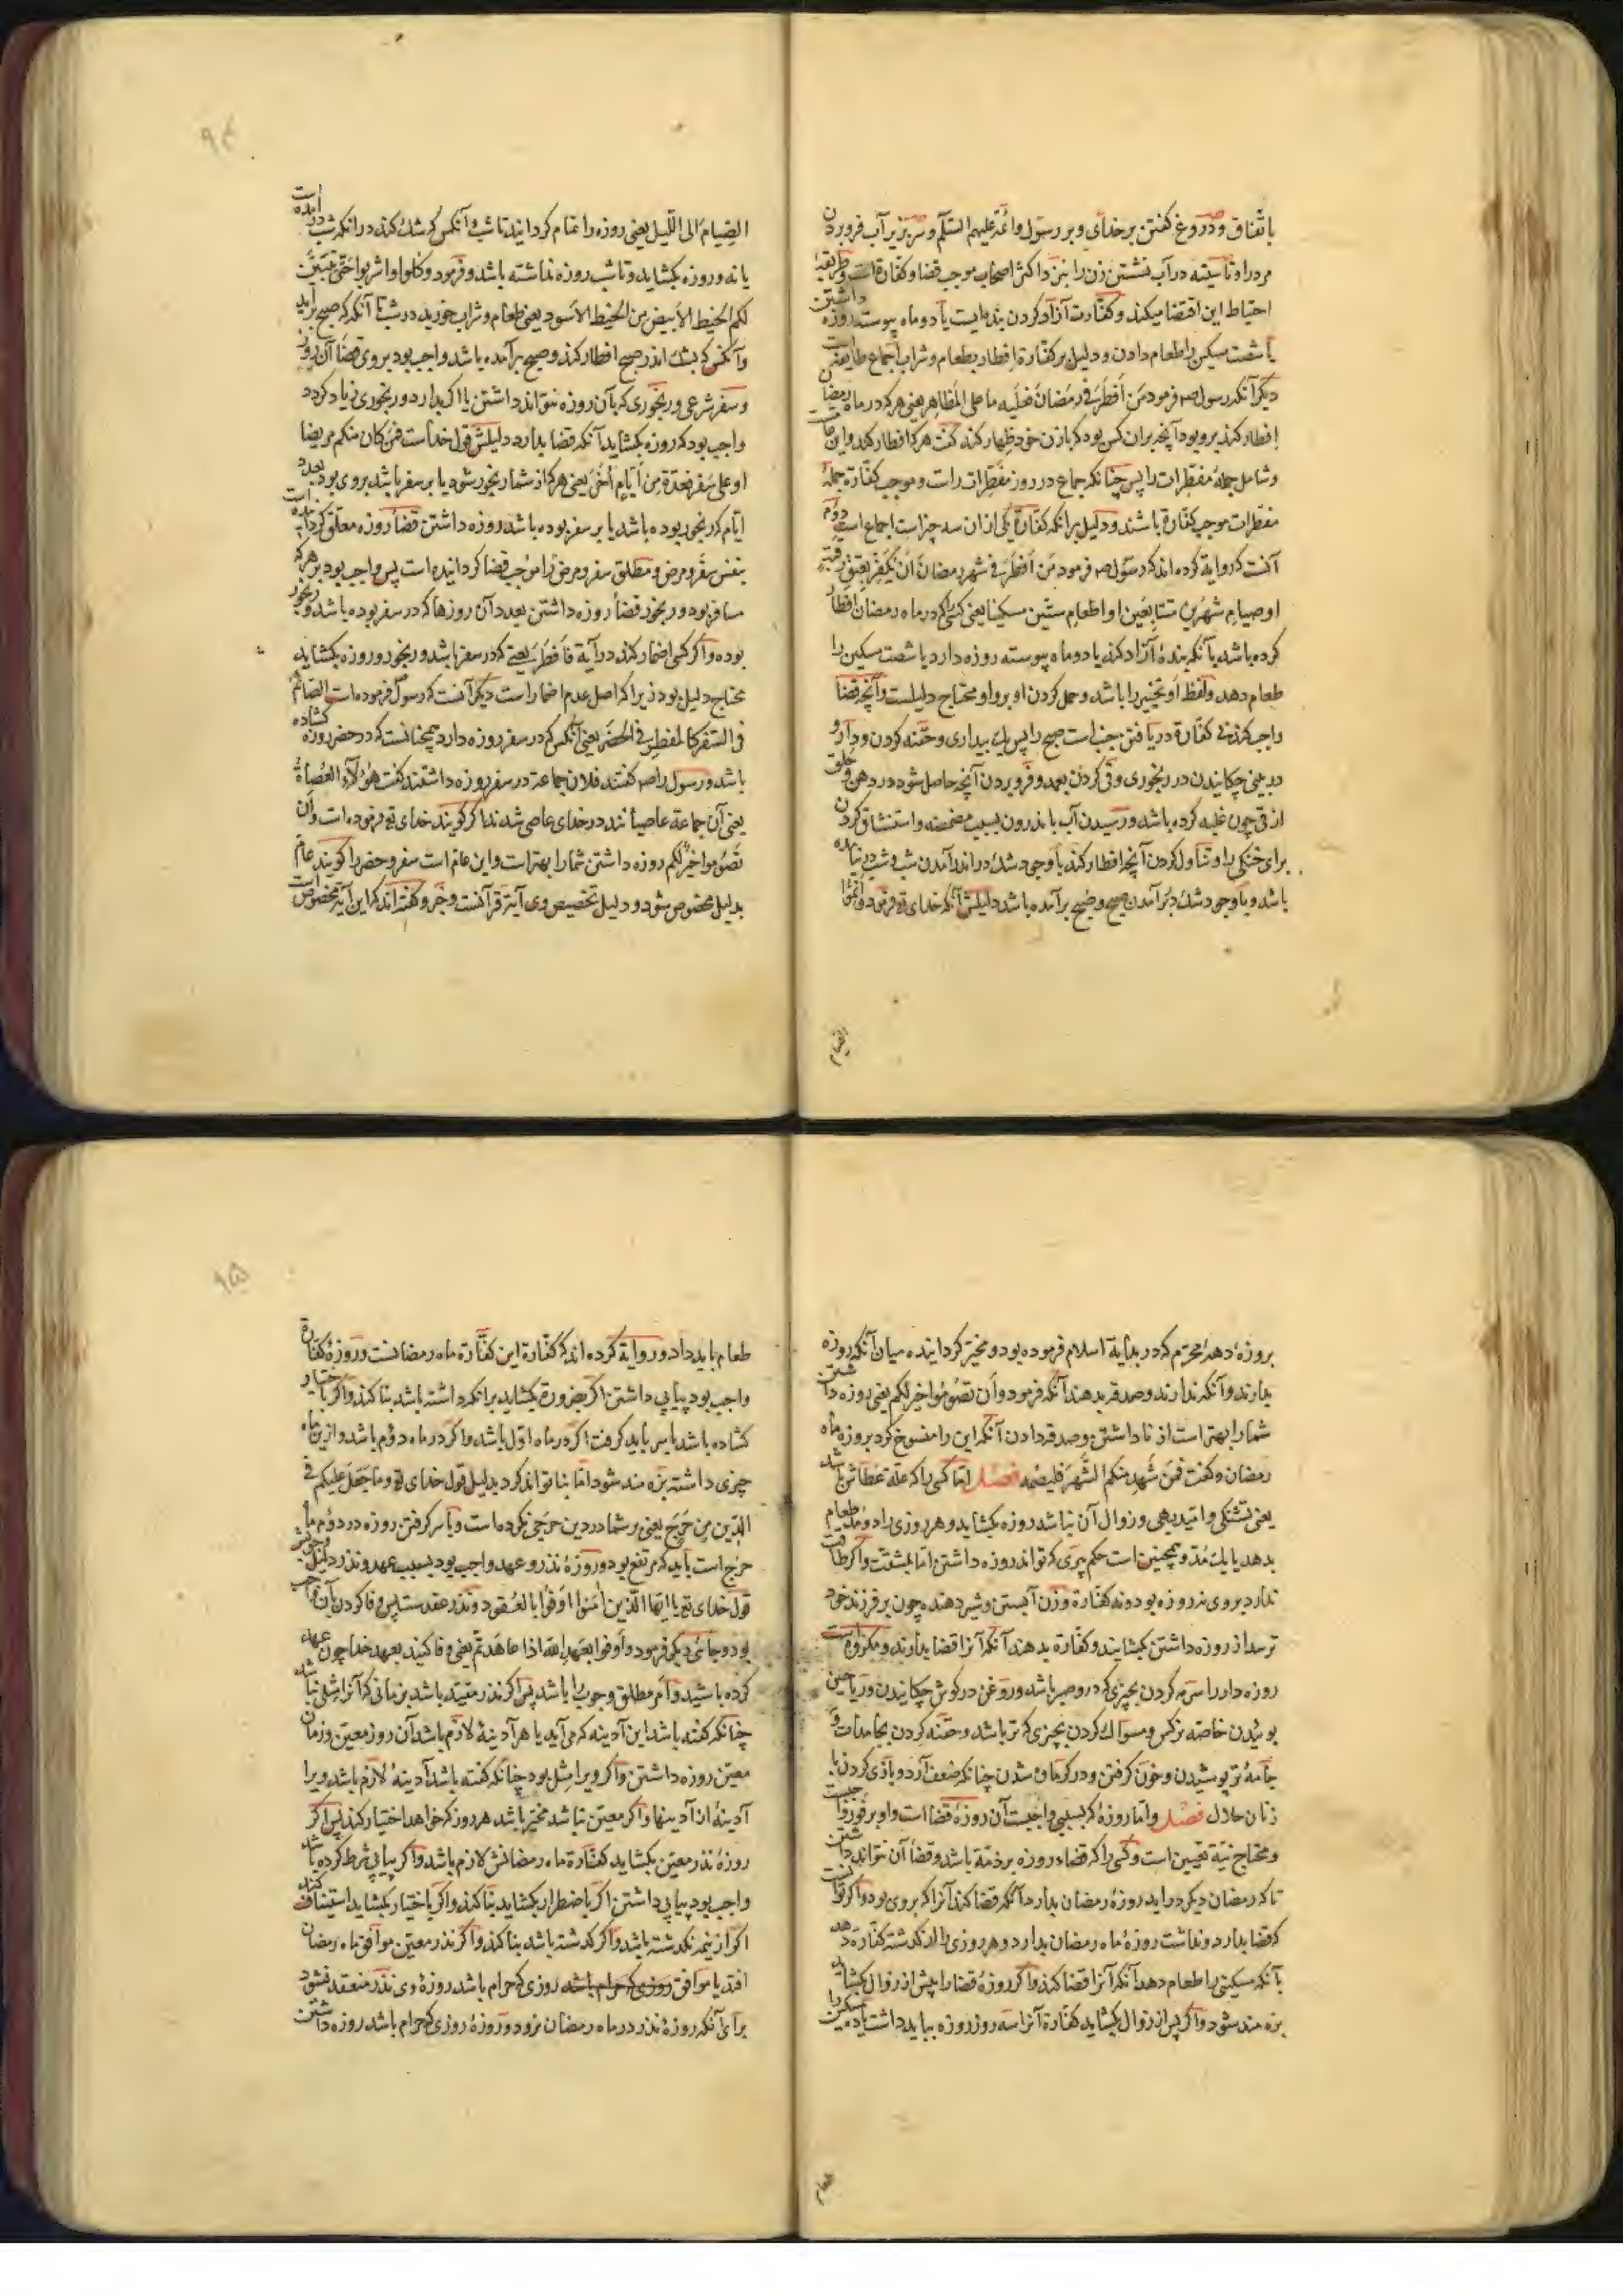 باتفاق و دروغ گفتن بر خدای و بر رسول و ائمه علیهم السلم و سر بزیر آب فرو بردن
مرد را و تا سینه در آب نشستن زن را بنزد اکثر اصحاب موجب قضا و کفارة است و طریقه
احتیاط این اقتضا میکند و کفارت آزاد کردن بنده ایست یا دو ماه پیوسته روزه داشتن
یا شصت مسکین را طعام دادن و دلیل بر کفارة افطار بطعام و شراب اجماع طایفه است
دیگر آنکه رسول صم فرمود من أفطر فی رمضان فعلیه ما علی المظاهر یعنی هرکه در ماه رمضان
افطار کند برو بود آنچه بران کس بود که با زن خود ظهار کند گفت هرکه افطار کند و این
و شامل جملهٔ مفطرات را پس چنانکه جماع در روز مفطرات راست و موجب کفارة جملهٔ
مفطرات موجب کفارة باشند و دلیل برانکه کفارة یکی ازان سه چیز است اجماع است دوم
آنست که روایة کرده اند که رسول صم فرمود من أفطر فی شهر رمضان أن یکفر بعتق رقبة
او صیام شهرین متتابعین او اطعام ستین مسکینا یعنی کسی را که در ماه رمضان افطار
کرده باشد بآنکه بندهٔ آزاد کند یا دو ماه پیوسته روزه دارد یا شصت مسکین را
طعام دهد و لفظ او تخییر را باشد و حمل کردن او بر واو محتاج دلیلست و آنچه قضا
واجب کند نه کفارة دریافتن جنب است صبح را پس یك بیداری و حقنه کردن و دارو
در بینی چکانیدن در رنجوری و قی کردن بعمد و فرو بردن آنچه حاصل شود در دهن و حلق
از قی چون غلبه کرده باشد و رسیدن آب باندرون بسبب مضمضه و استنشاق کردن
برای خنکی را و تناول کردن آنچه افطار کند با وجود شك در اندر آمدن شب و شب در نیامده
باشد و با وجود شك در بر آمدن صبح و صبح برآمده باشد دلیلش آنکه خدای تع فرمود و أتموا
الصیام
۹۴
الصیام الی اللیل یعنی روزه را تمام گردانید تا شب و آنکس که شك کند در آنکه شب در آمده است
یا نه و روزه بگشاید و تا شب روزه نداشته باشد و فرمود و کلوا و اشربوا حتی یتبین
لکم الخیط الابیض من الخیط الاسود یعنی طعام و شراب خورید در شب تا آنکه که صبح برآید
و آنکس که بشك اندر صبح افطار کند و صبح برآمده باشد واجب بود بر وی قضاء آن روز
و سفر شرعی و رنجوری که بآن روزه نتواند داشتن یا اگر بدارد رنجوری زیاد گردد
واجب بود که روزه بگشاید آنکه قضا بدارد دلیلش قول خداست فمن کان منکم مریضا
او علی سفر فعدة من أیام أخر یعنی هرکه از شما رنجور شود یا بر سفر باشد بر وی بود بعدد
ایام که رنجور بوده باشد یا بر سفر بوده باشد روزه داشتن قضاء روزه معلق کرده است
بنفس سفر و مرض و مطلق سفر و مرض را موجب قضا گردانیده است پس واجب بود بر هرکه
مسافر بود و رنجور قضاء روزه داشتن بعدد آن روزها که در سفر بوده باشد و رنجور
بوده و اگر کسی اضمار کند در آیة فأفطر یعنی که در سفر باشد و رنجور و روزه بگشاید
محتاج دلیل بود زیراکه اصل عدم اضمار است دیگر آنست که رسول فرموده است الصائم
فی السفر کالمفطر فی الحضر یعنی آنکس که در سفر روزه دارد همچنانست که در حضر روزه گشاده
باشد و رسول را صم گفتند فلان جماعة در سفر روزه داشتند گفت هؤلاء العصاة
یعنی آن جماعة عاصیانند در خدای عاصی شدند اگر گویند خدای تع فرموده است و أن
تصوموا خیر لکم روزه داشتن شما را بهتر است و این عام است سفر و حضر را گویند عام
بدلیل مخصوص شود و دلیل تخصیص وی آیة قرآنست و خبر و گفته اند که این آیة مخصوص است
بروزهٔ دههٔ محرم که در بدایة اسلام فرموده بود و مخیر گردانیده میان آنکه روزه
بدارند و آنکه ندارند و صدقه بدهند آنکه فرمود و أن تصوموا خیر لکم یعنی روزه داشتن
شما را بهتر است از ناداشتن و صدقه دادن آنکه این را منسوخ کرد بروزه ماه
رمضان و گفت فمن شهد منکم الشهر فلیصمه فصل اما کسی را که علة عطاش باشد
یعنی تشنگی و امید بهی و زوال آن نباشد روزه بگشاید و هر روزی را دو مد طعام
بدهد یا یك مد و همچنین است حکم پیری که تواند روزه داشتن اما بمشقت و اگر طاقت
ندارد بر وی نه روزه بود و نه کفارة و زن آبستن و شیر دهنده چون بر فرزند خود
ترسد از روزه داشتن بگشایند و کفارة بدهند آنکه آنرا قضا بدارند و مکروه است
روزه دار را سرمه کردن بچیزی که در و صبر باشد و روغن در گوش چکانیدن و ریاحین
بوئیدن خاصه نرگس و مسواك کردن بچیزی که تر باشد و حقنه کردن بجامدات و
جامهٔ تر پوشیدن و خون گرفتن و در گرمابه شدن چنانکه ضعف آرد و بازی کردن با
زنان حلال فصل و اما روزهٔ که بسببی واجبست آن روزهٔ قضا است و او بر فور واجبست
و محتاج نیة تعیین است و کسی را که قضاء روزه بر ذمة باشد و قضاء آن نتواند داشتن
تا که رمضان دیگر در آید روزهٔ رمضان بدارد آنکه قضا کند آنرا که بر وی بود و اگر توانست
که قضا بدارد و نداشت روزهٔ ماه رمضان بدارد و هر روزی را از گذشته کفارة دهد
بآنکه مسکینی را طعام دهد آنکه آنرا قضا کند و اگر روزهٔ قضا را پیش از زوال بگشاید
بزه مند شود و اگر پس از زوال بگشاید کفارة آنرا سه روز روزه بباید داشت یا ده مسکین را
طعام
۹۵
طعام باید داد و روایة کرده اند که کفارة این کفارة ماه رمضانست و روزهٔ کفارة
واجب بود پیاپی داشتن اگر بضرورة بگشاید برانکه داشته باشد بنا کند و اگر باختیار
گشاده باشد با سر باید گرفت اگر در ماه اول باشد و اگر در ماه دوم باشد و ازین ماه
چیزی داشته بزه مند شود اما بنا تواند کرد بدلیل قول خدای تع و ما جعل علیکم فی
الدین من حرج یعنی بر شما در دین حرجی نکرده است و با سر گرفتن روزه در دوم ماه
حرج است باید که مرتفع بود و روزهٔ نذر و عهد واجب بود بسبب عهد و نذر دلیل وجوبش
قول خدای تع یا ایها الذین امنوا اوفوا بالعقود و نذر عقد ست پس وفا کردن بآن واجب
بود و جائی دیگر فرمود و أوفوا بعهد الله اذا عاهدتم یعنی وفا کنید بعهد خدا چون عهد
کرده باشید و أمر مطلق وجوب را باشد پس اگر نذر مقید باشد بزمانی که آنرا مثلی نباشد
چنانکه گفته باشد این آدینه که می آید یا هر آدینهٔ لازم باشد آن روز معین و زمان
معین روزه داشتن و اگر ویرا مثل بود چنانکه گفته باشد آدینهٔ لازم باشد ویرا
آدینهٔ از آدینها و اگر معین نباشد مخیر باشد هر روز که خواهد اختیار کند پس اگر
روزهٔ نذر معین بگشاید کفارة ماه رمضانش لازم باشد و اگر پیاپی شرط کرده باشد
واجب بود پیاپی داشتن اگر باضطرار بگشاید بنا کند و اگر باختیار بگشاید استیناف کند
اگر از نیمه نگذشته باشد و اگر گذشته باشد بنا کند و اگر نذر معین موافق ماه رمضان
افتد یا موافق روزی که حرام باشد روزی که حرام باشد روزهٔ وی نذر منعقد نشود
برای آنکه روزهٔ نذر در ماه رمضان نرود و روزهٔ روزی که حرام باشد روزه داشتن